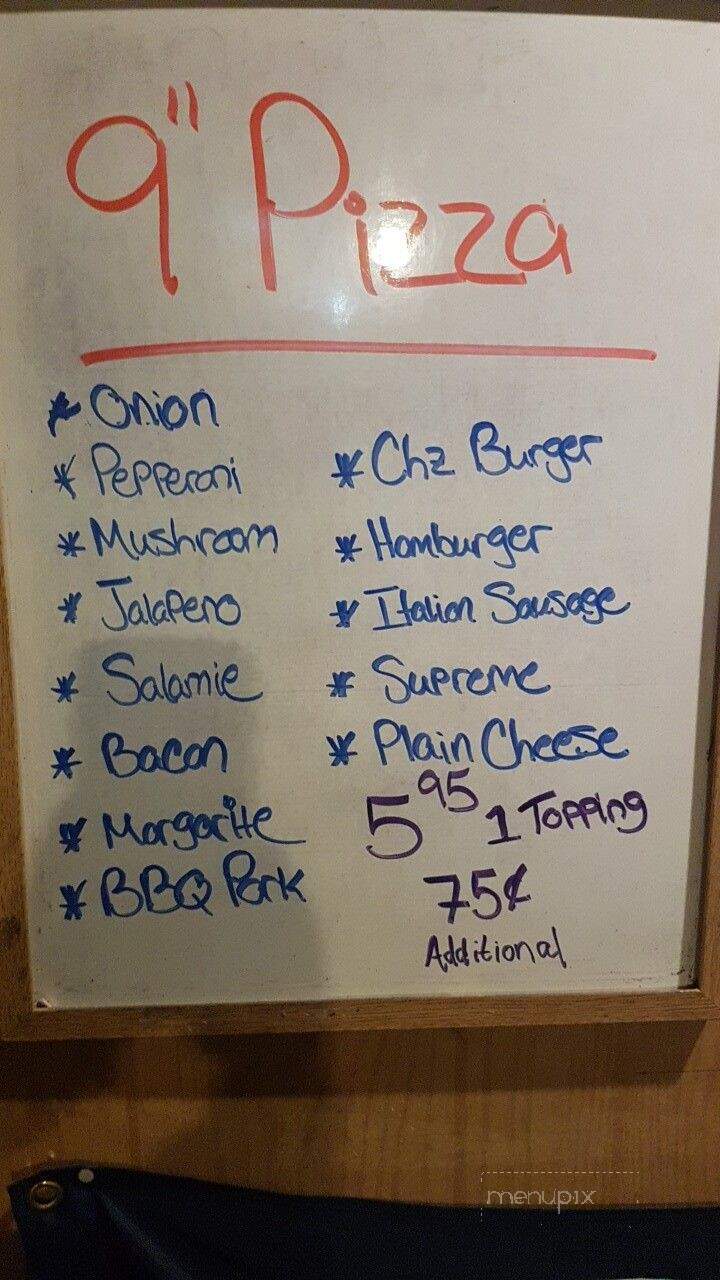 9" Pizza
* Onion
* Pepperoni
* Mushroom
* Jalapeno
* Salamie
* Bacon
* Margarite
* BBQ Pork
* Chz Burger
* Hamburger
* Italian Sausage
* Supreme
* Plain Cheese
5 95 1 Topping
75¢
Additional
menupix